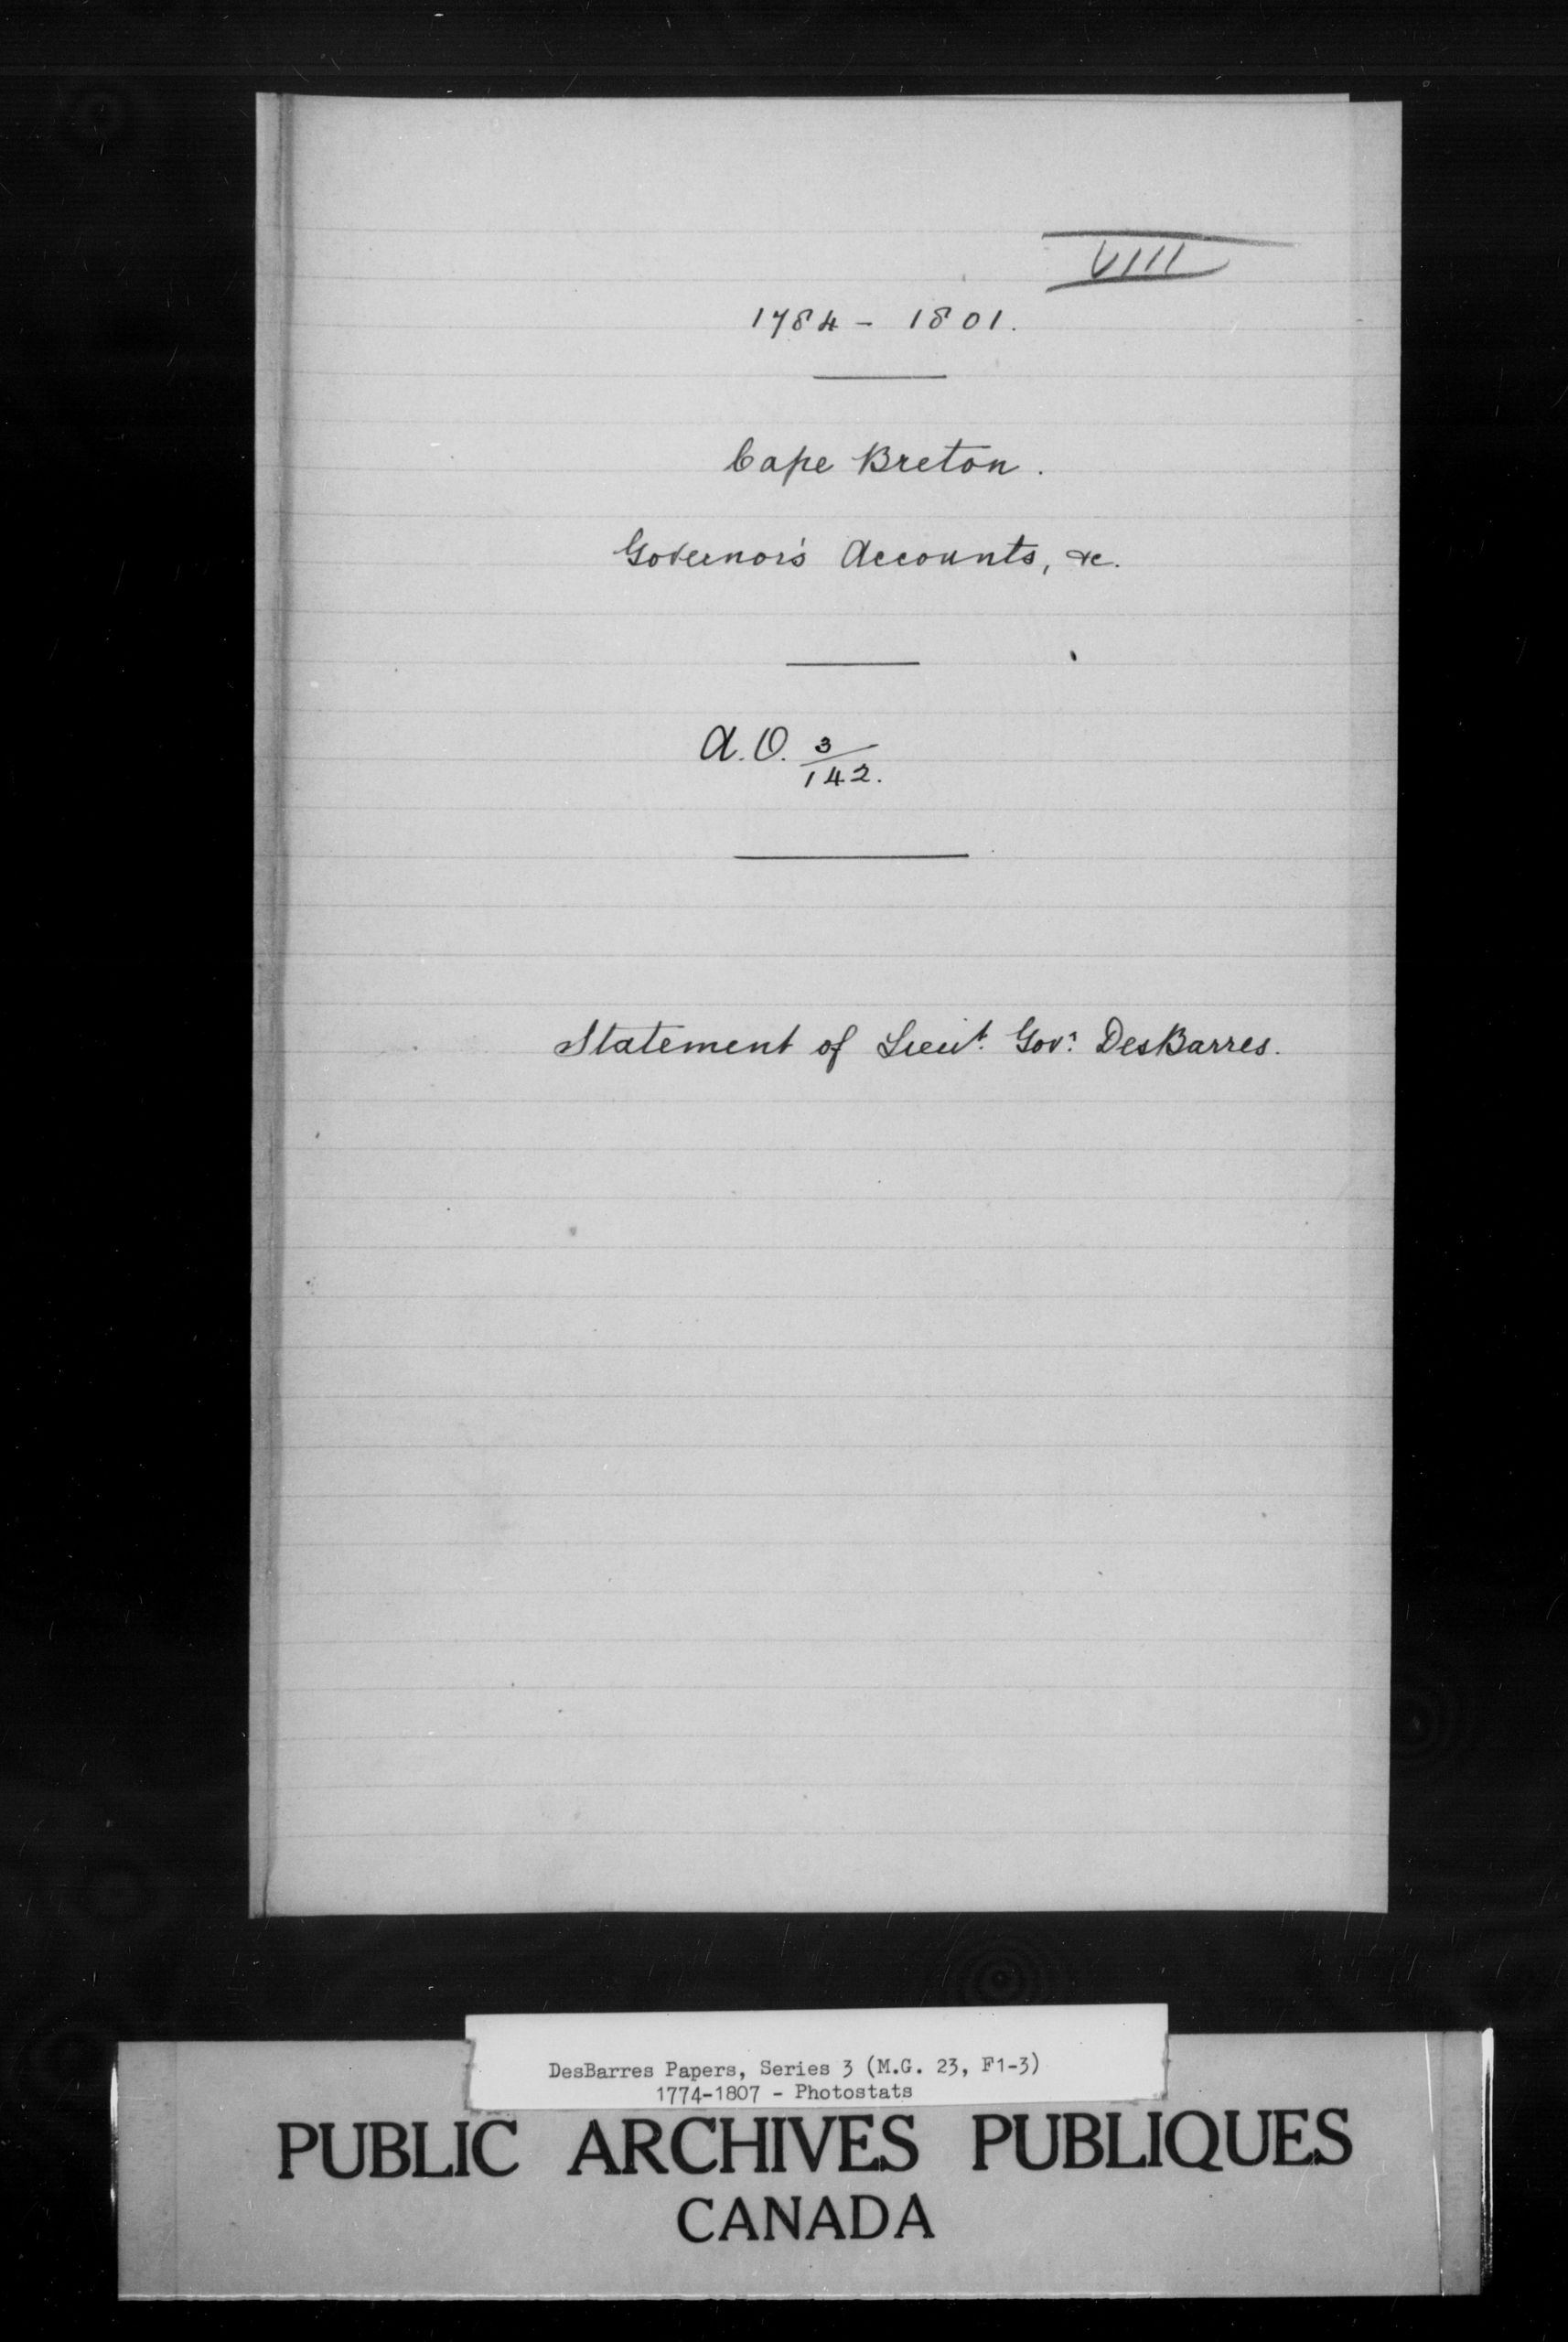 VIII
1784 - 1801.
Cape Breton.
Governor's Accounts, &c.
A.O. 3/142.
Statement of Lieut. Govr. DesBarres.
DesBarres Papers, Series 3 (M.G. 23, F1-3)
1774-1807 - Photostats
PUBLIC ARCHIVES PUBLIQUES
CANADA